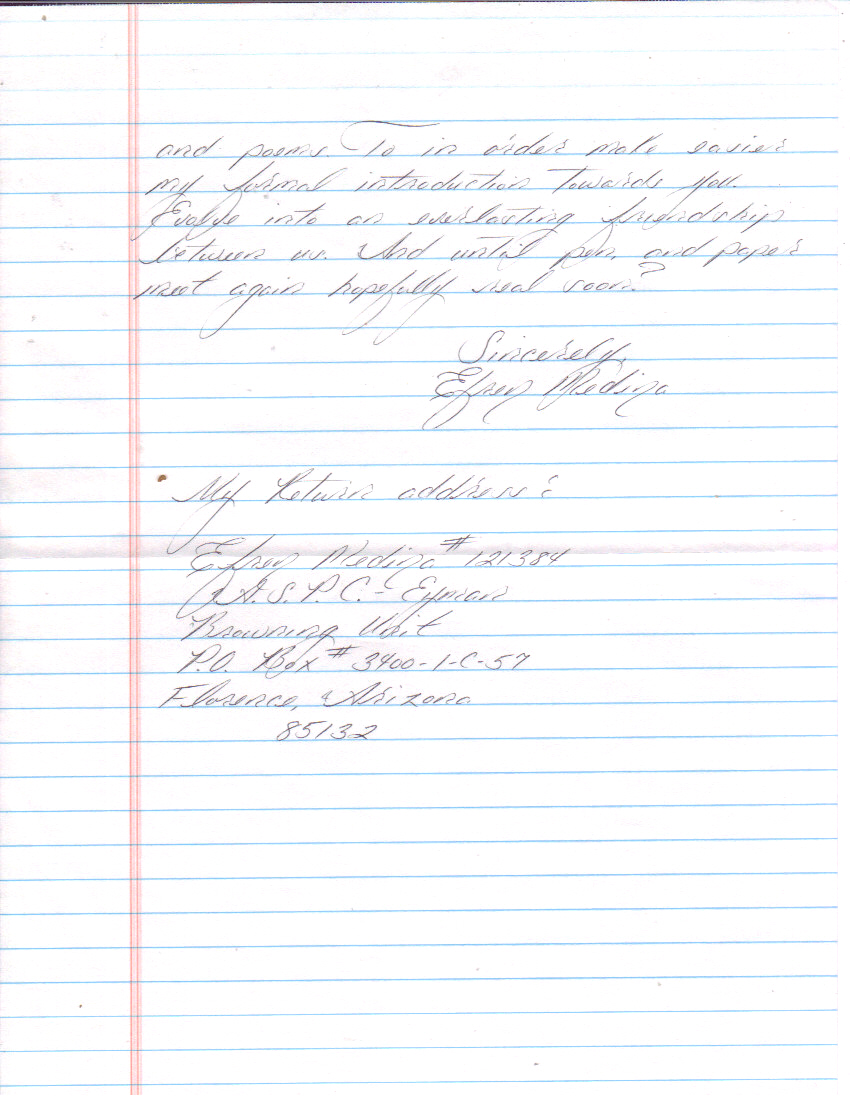 and poems. To in order make easier
my formal introduction towards you.
Evolve into an everlasting friendship
between us. And until pen, and paper
meet again hopefully real soon?
Sincerely,
Efren Medina
My Return address:
Efren Medina # 121384
A.S.P.C. - Eyman
Browning Unit
P.O. Box # 3400-1-C-57
Florence, Arizona
85132